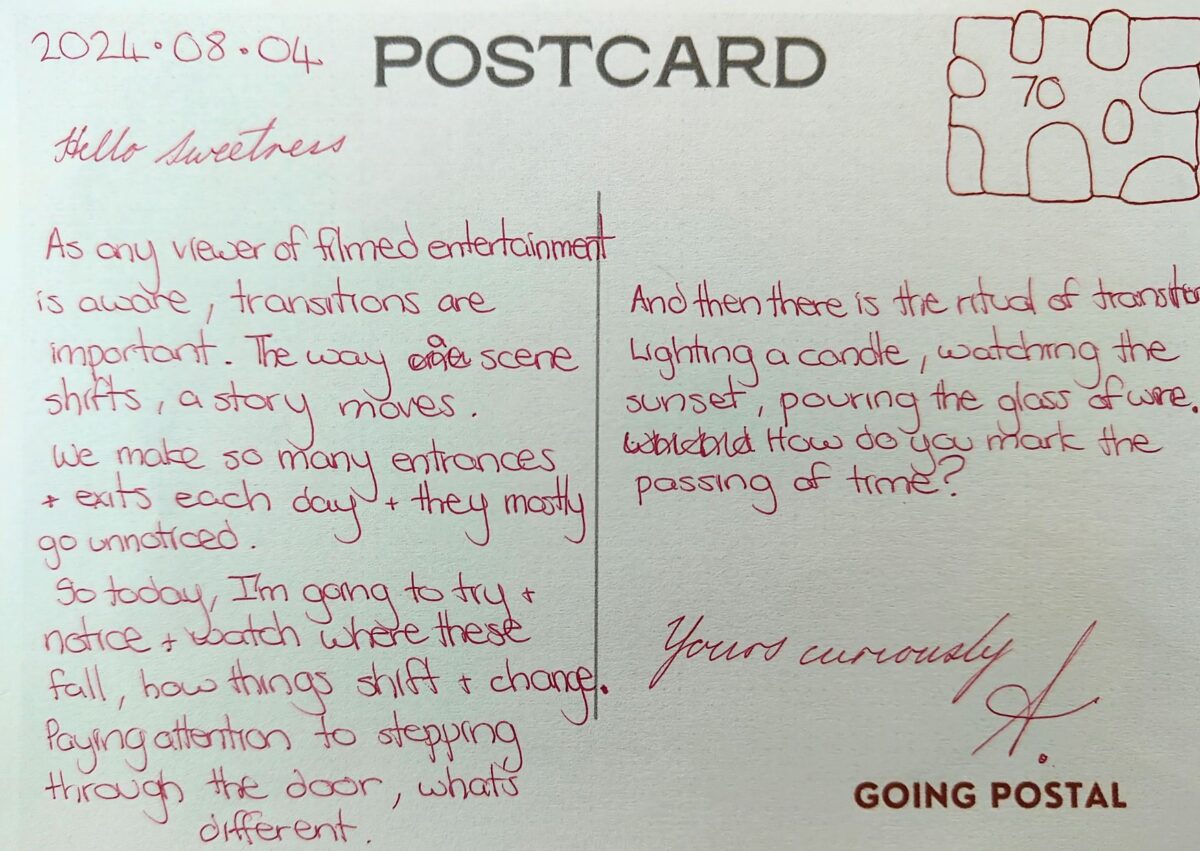 2024.08.04
POSTCARD
70
Hello Sweetness
As any viewer of filmed entertainment
is aware, transitions are
important. The way a scene
shifts, a story moves.
We make so many entrances
+ exits each day + they mostly
go unnoticed.
So today, I'm going to try +
notice + watch where these
fall, how things shift + change.
Paying attention to stepping
through the door, what's
different.
And then there is the ritual of
Lighting a candle, watching the
sunset, pouring the glass of wine.
How do you mark the
passing of time?
Yours curiously
A.
GOING POSTAL